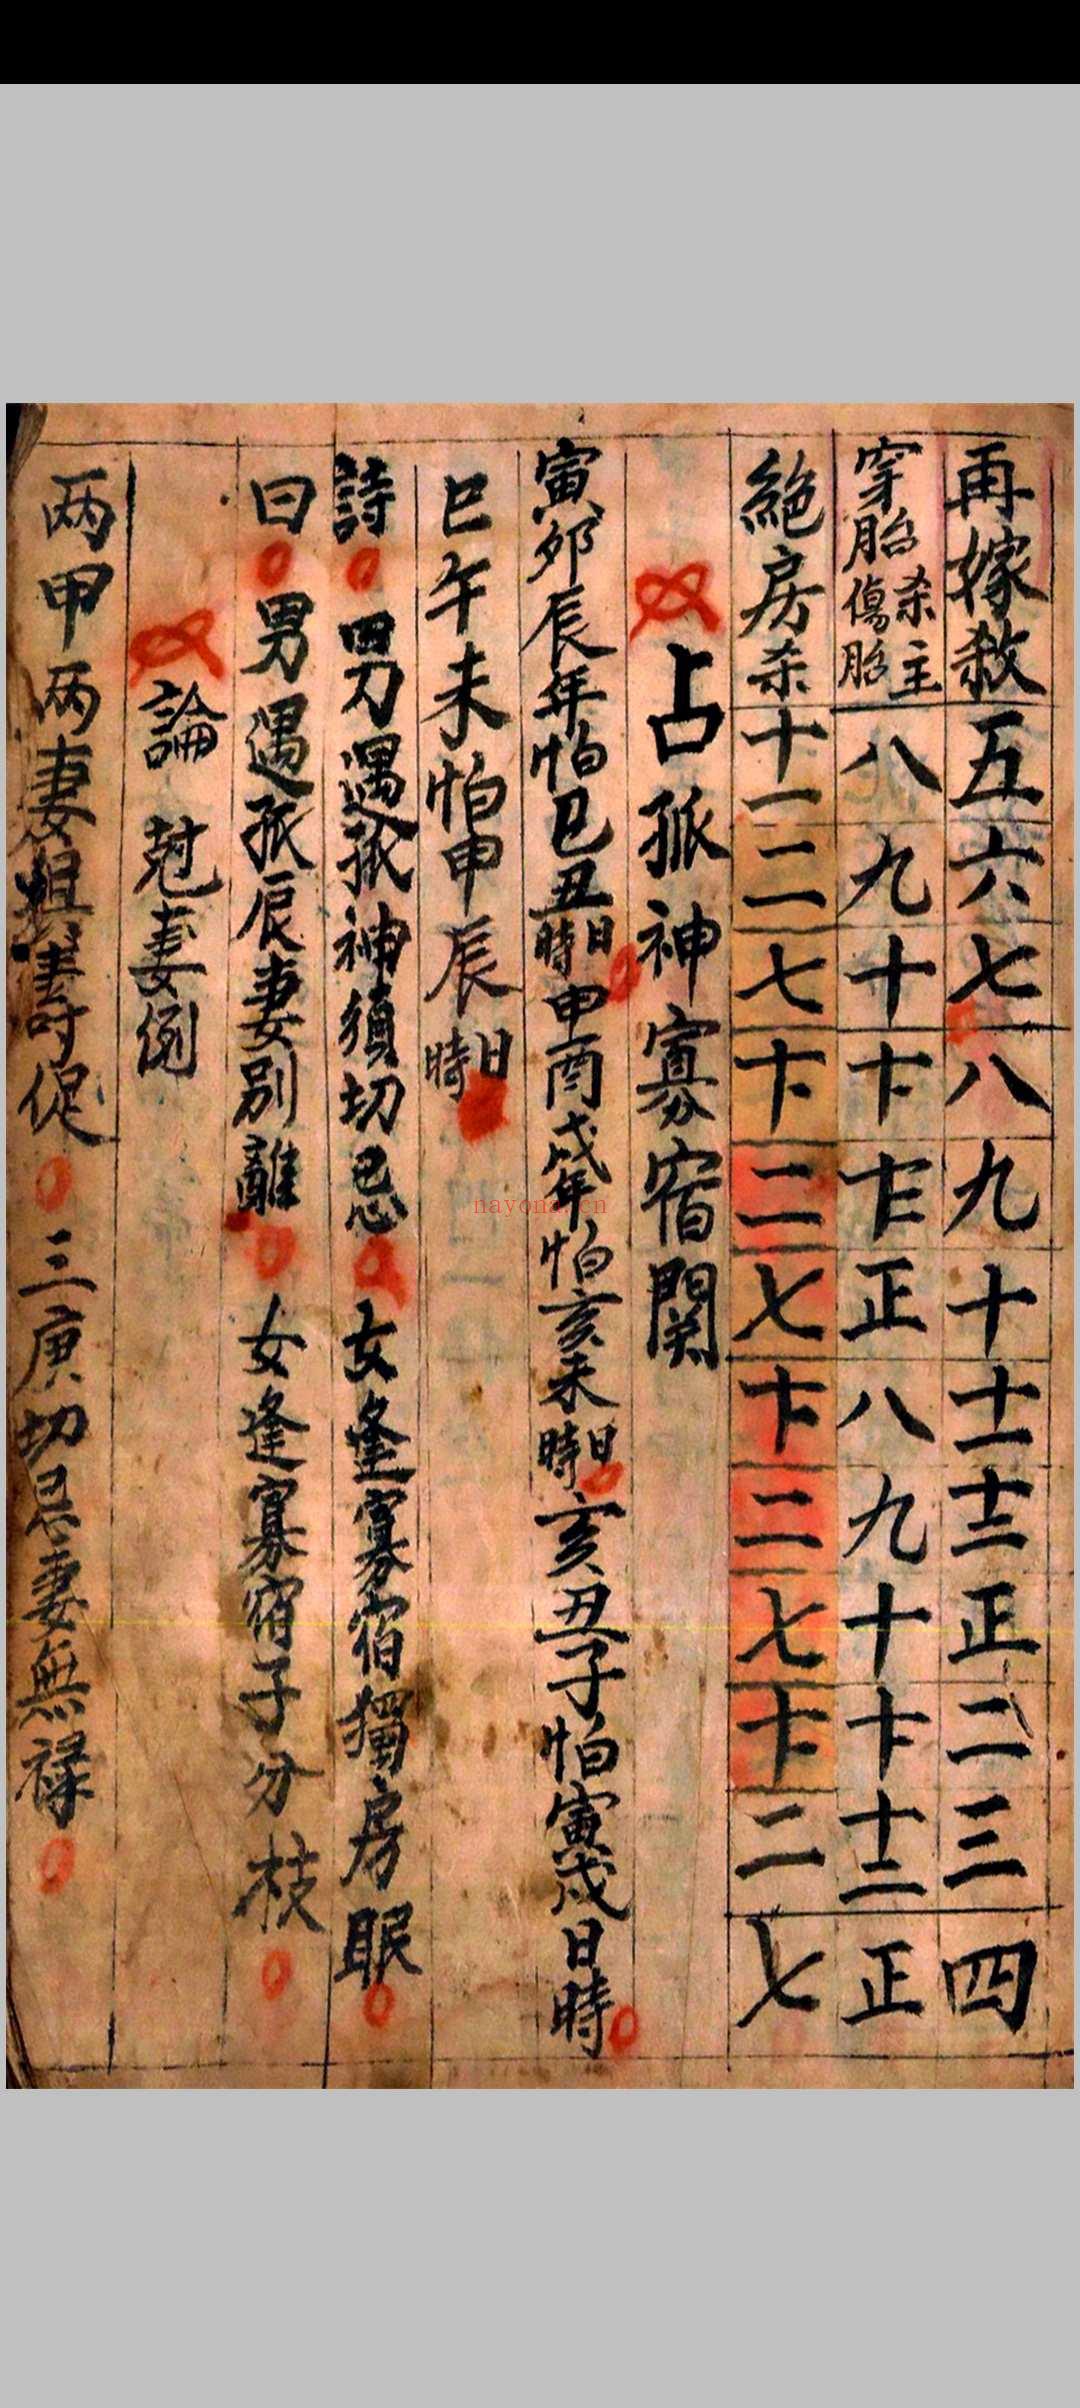 再嫁殺 五 六 七 八 九 十 十一 十二 正 二 三 四
穿胎杀主傷胎 八 九 十 十 正 八 九 十 十 十二 正
絕房杀 十一 二二 七 二二 七 二 七 二 七
占孤神寡宿関
寅卯辰年怕巳丑日時 申酉戌年怕亥未日時 亥丑子怕寅戌日時
巳午未怕申辰日時
詩 男遇孤神須切忌 女逢寡宿獨房眠
曰 男遇孤辰妻別離 女逢寡宿子分枝
論尅妻例
两甲两妻壽促 三庚切忌妻無禄
nayona.cn